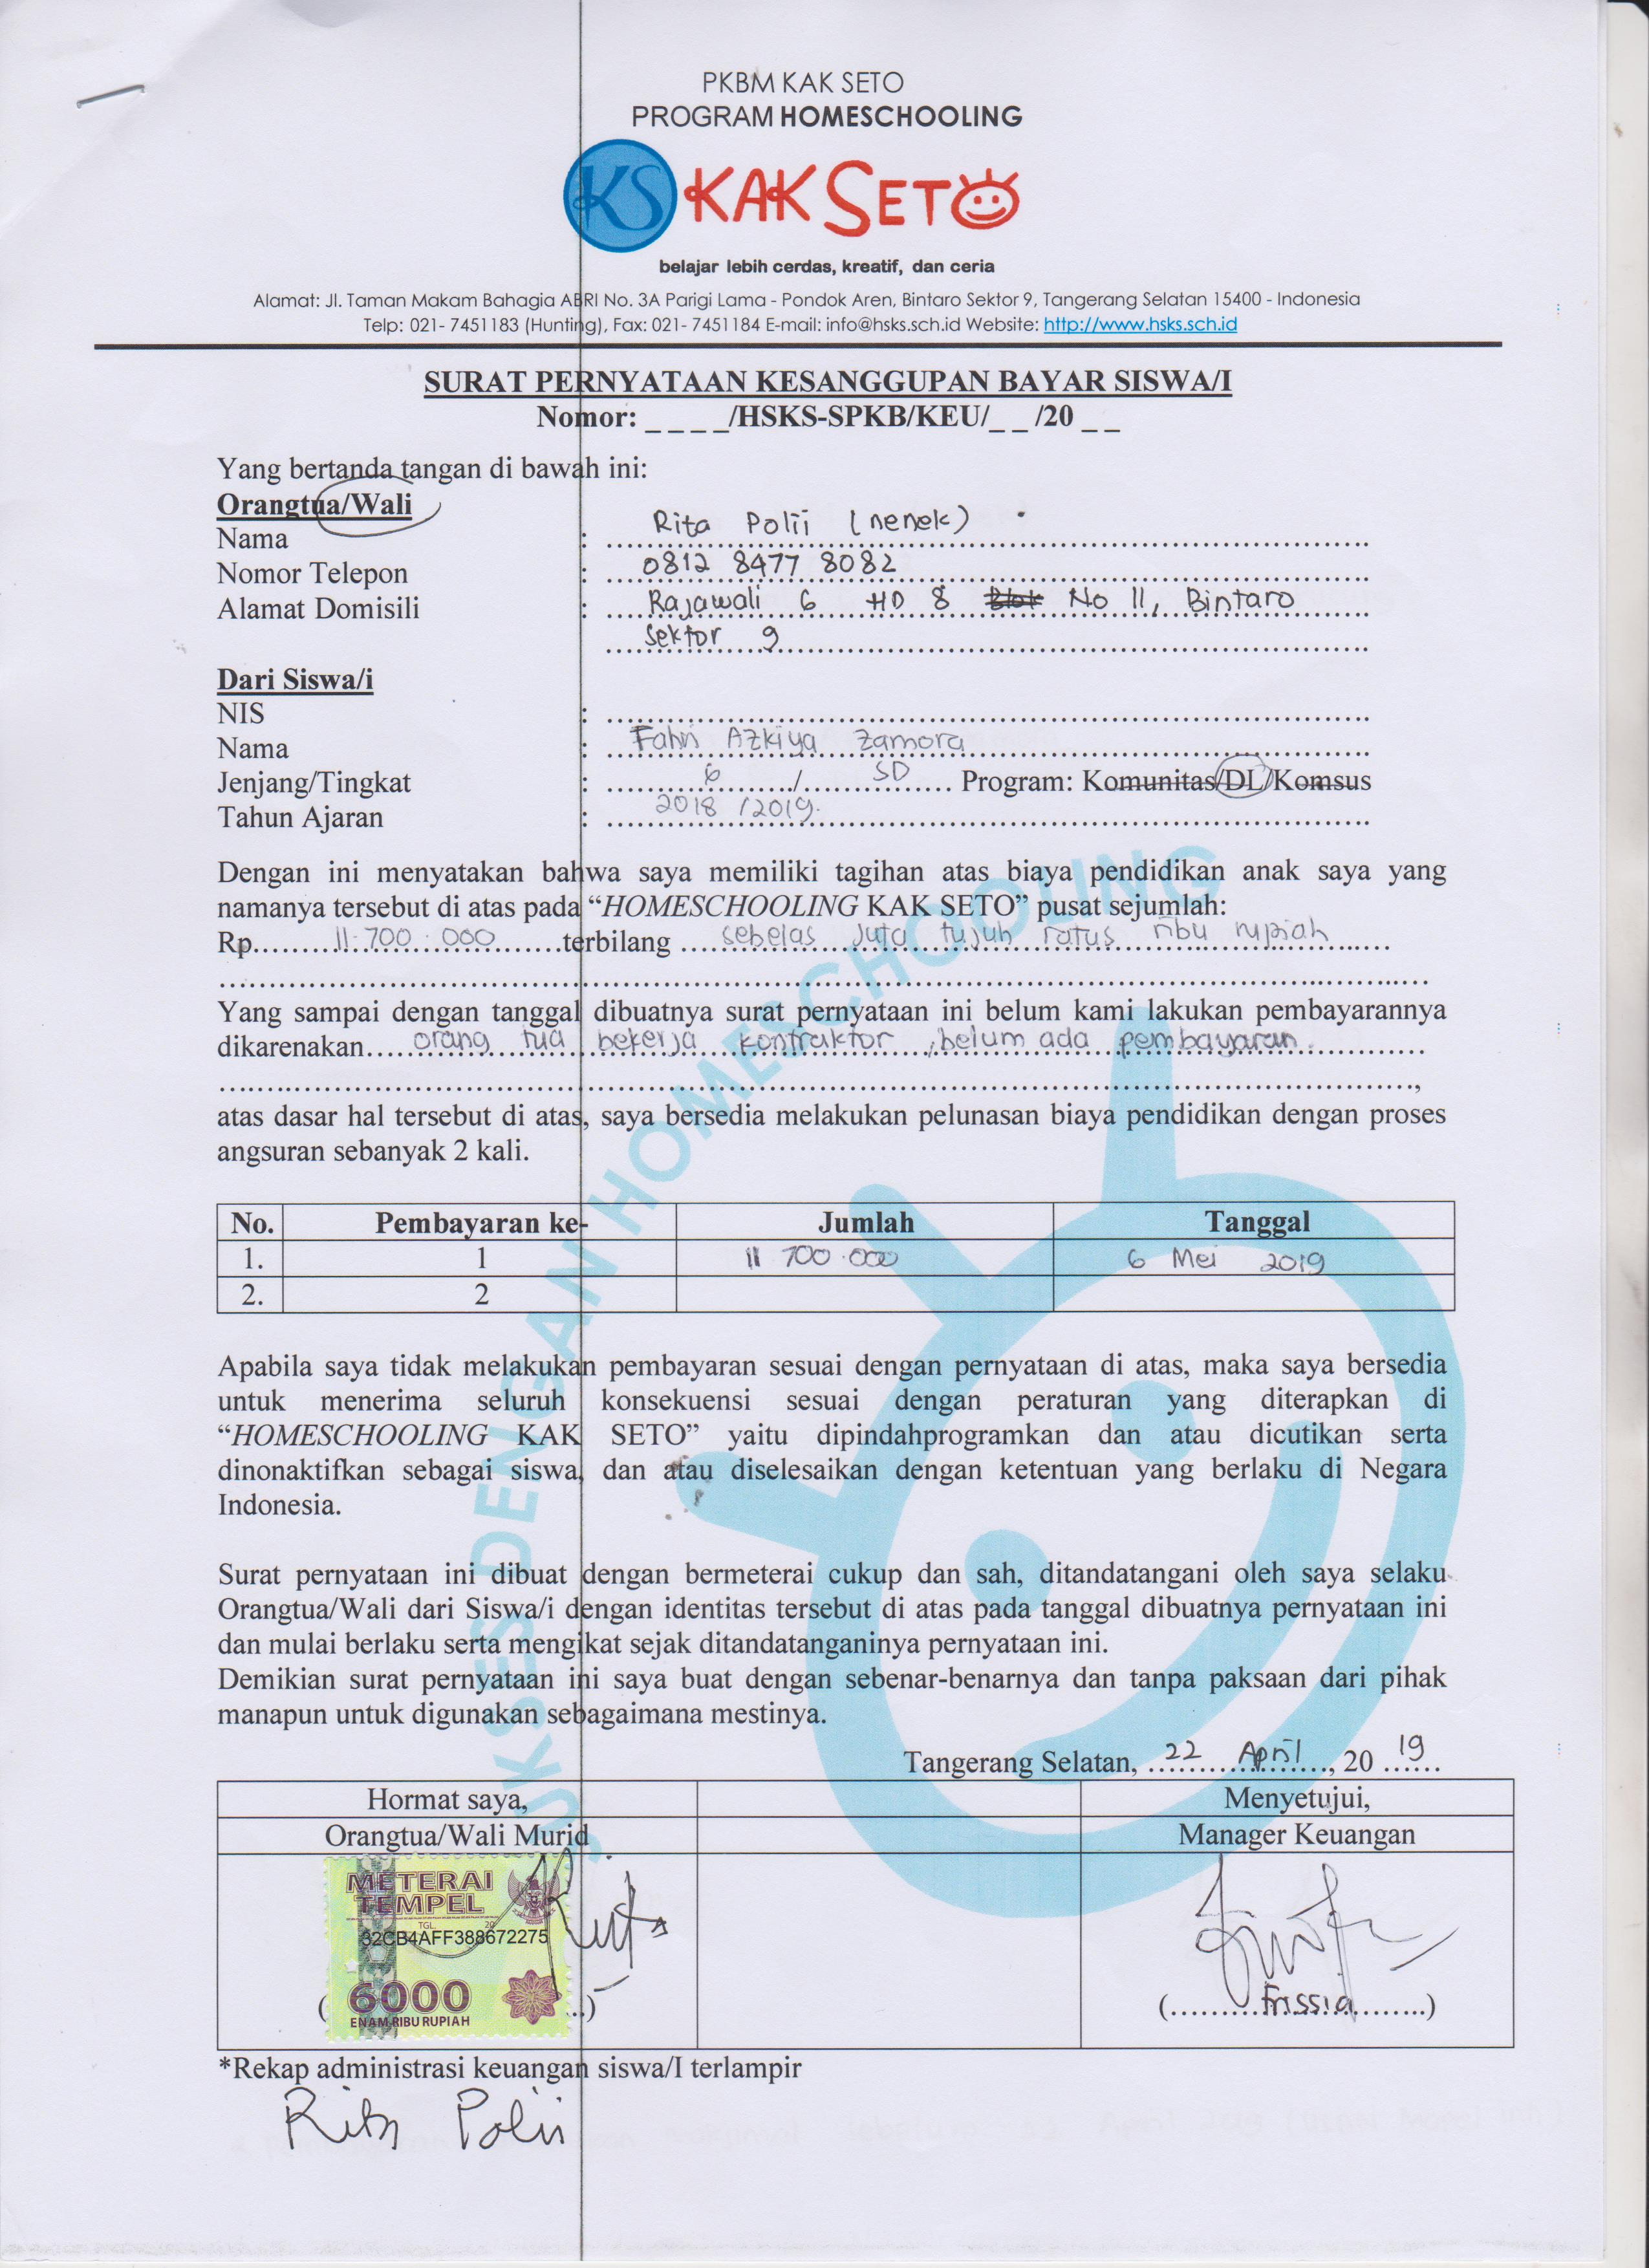 PKBM KAK SETO
PROGRAM HOMESCHOOLING
KS KAK SETO
belajar lebih cerdas, kreatif, dan ceria
Alamat: Jl. Taman Makam Bahagia ABRI No. 3A Parigi Lama - Pondok Aren, Bintaro Sektor 9, Tangerang Selatan 15400 - Indonesia
Telp: 021- 7451183 (Hunting), Fax: 021- 7451184 E-mail: info@hsks.sch.id Website: http://www.hsks.sch.id
SURAT PERNYATAAN KESANGGUPAN BAYAR SISWA/I
Nomor: _ _ _ _/HSKS-SPKB/KEU/_ _ /20 _ _
Yang bertanda tangan di bawah ini:
Orangtua/Wali
Nama : Rita Polii (nenek)
Nomor Telepon : 0812 8477 8082
Alamat Domisili : Rajawali 6 HD 8 Blok No 11, Bintaro
Sektor 9
Dari Siswa/i
NIS :
Nama : Fahri Azkiya Zamora
Jenjang/Tingkat : 6 / SD Program: Komunitas/DL/Komsus
Tahun Ajaran : 2018 / 2019.
Dengan ini menyatakan bahwa saya memiliki tagihan atas biaya pendidikan anak saya yang
namanya tersebut di atas pada “HOMESCHOOLING KAK SETO” pusat sejumlah:
Rp 11.700.000 terbilang sebelas juta tujuh ratus ribu rupiah
Yang sampai dengan tanggal dibuatnya surat pernyataan ini belum kami lakukan pembayarannya
dikarenakan orang tua bekerja kontraktor, belum ada pembayaran.
,
atas dasar hal tersebut di atas, saya bersedia melakukan pelunasan biaya pendidikan dengan proses
angsuran sebanyak 2 kali.
No. Pembayaran ke- Jumlah Tanggal
1. 1 11 700.000 6 Mei 2019
2. 2
Apabila saya tidak melakukan pembayaran sesuai dengan pernyataan di atas, maka saya bersedia
untuk menerima seluruh konsekuensi sesuai dengan peraturan yang diterapkan di
“HOMESCHOOLING KAK SETO” yaitu dipindahprogramkan dan atau dicutikan serta
dinonaktifkan sebagai siswa, dan atau diselesaikan dengan ketentuan yang berlaku di Negara
Indonesia.
Surat pernyataan ini dibuat dengan bermeterai cukup dan sah, ditandatangani oleh saya selaku
Orangtua/Wali dari Siswa/i dengan identitas tersebut di atas pada tanggal dibuatnya pernyataan ini
dan mulai berlaku serta mengikat sejak ditandatanganinya pernyataan ini.
Demikian surat pernyataan ini saya buat dengan sebenar-benarnya dan tanpa paksaan dari pihak
manapun untuk digunakan sebagaimana mestinya.
Tangerang Selatan, 22 April, 20 19
Hormat saya, Menyetujui,
Orangtua/Wali Murid Manager Keuangan
METERAI
TEMPEL
TGL. 20
32CB4AFF388672275
6000
ENAM RIBU RUPIAH
(Frissia)
*Rekap administrasi keuangan siswa/I terlampir
Rita Polii
SUKSES DENGAN HOMESCHOOLING